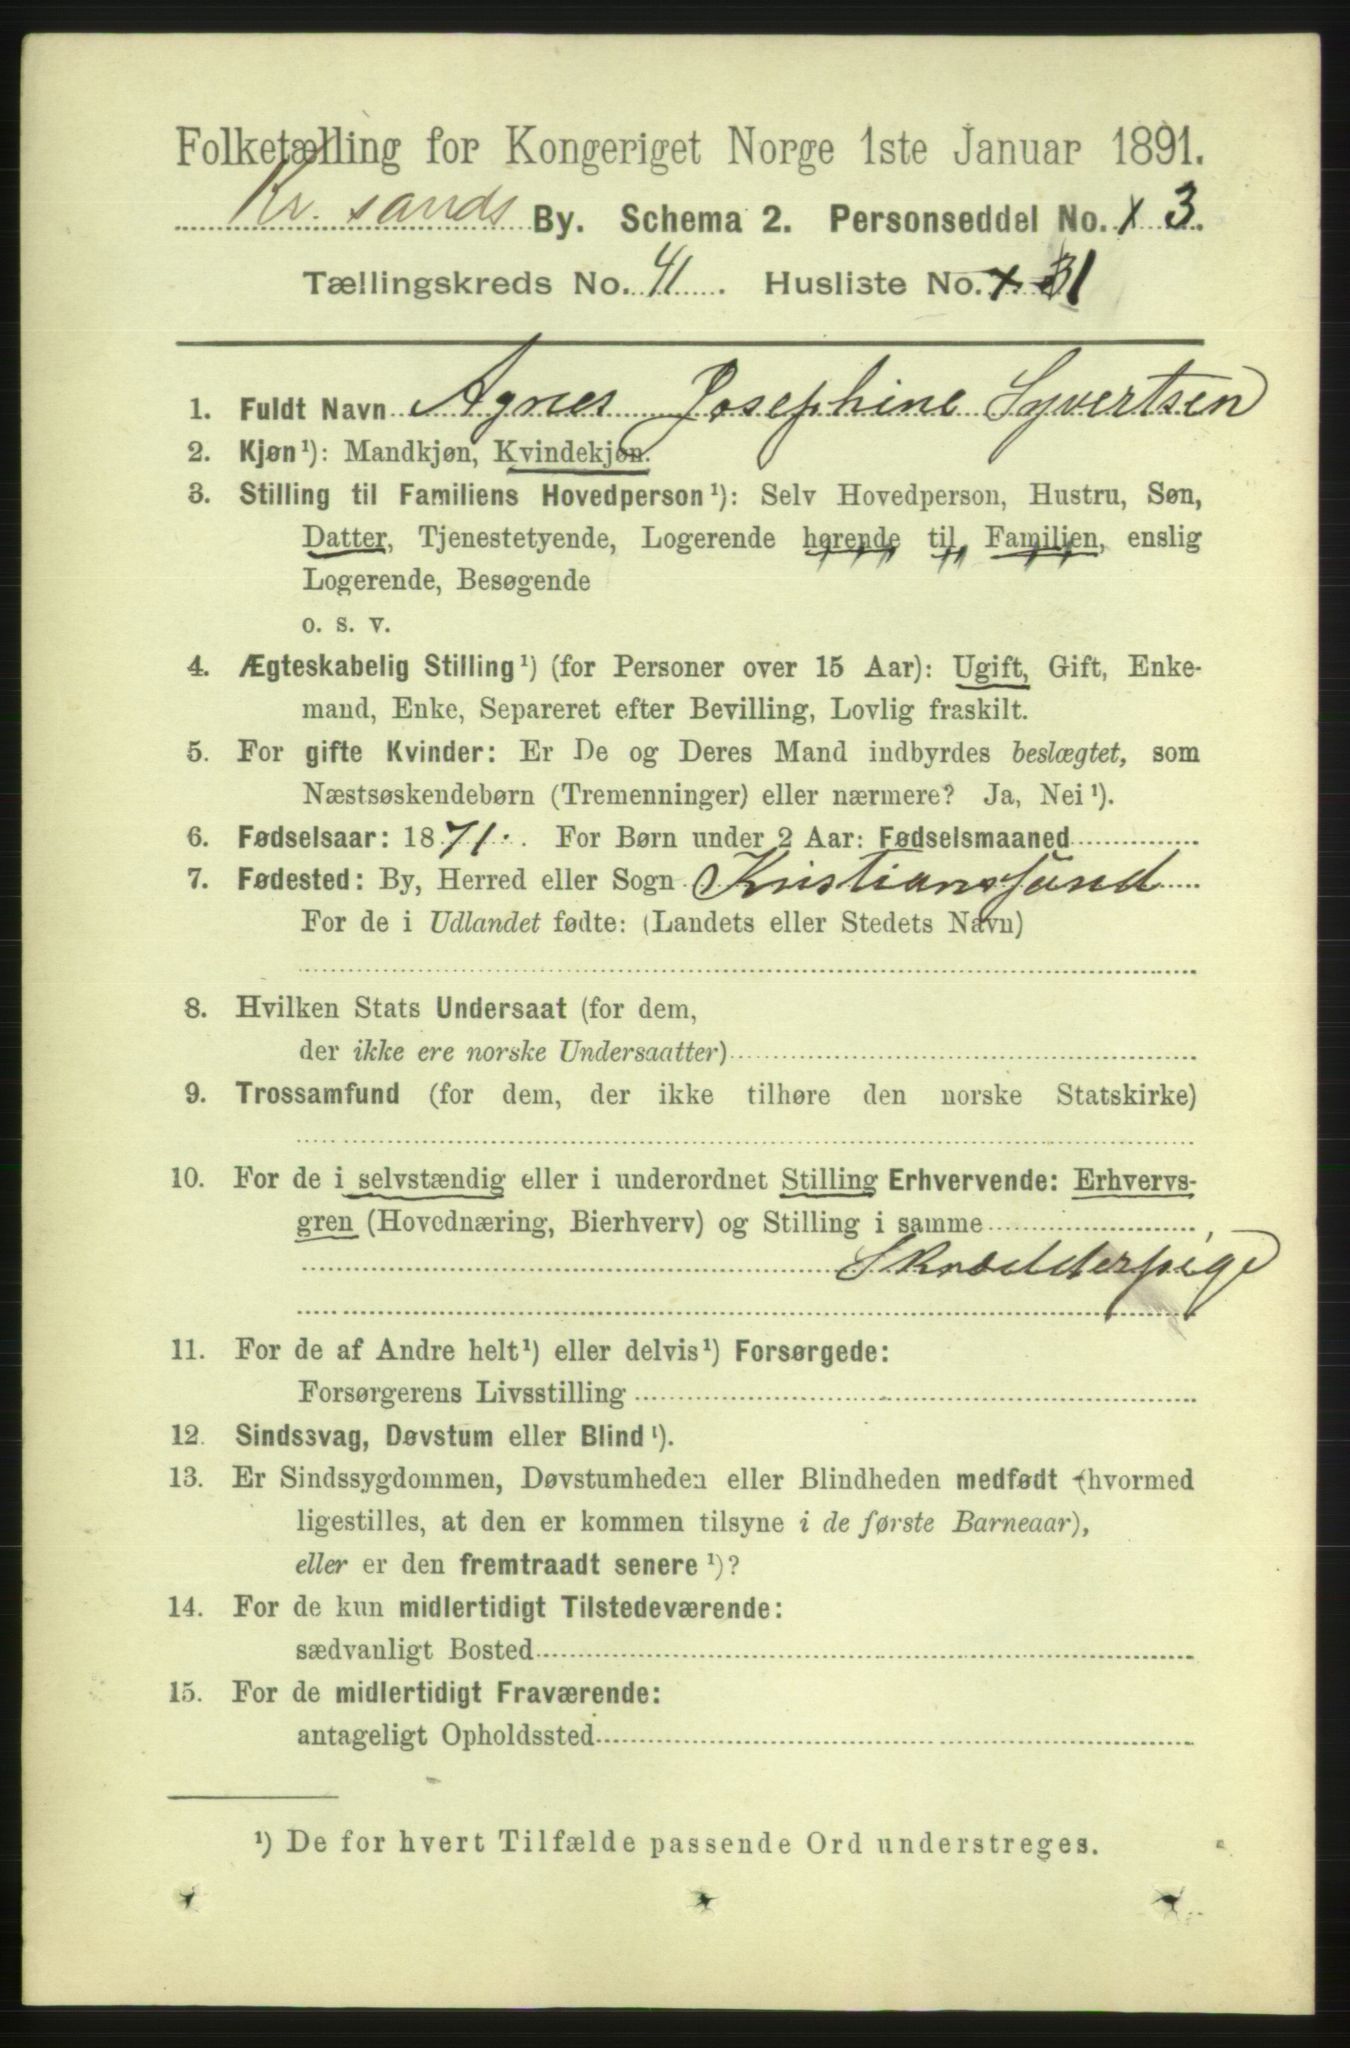 Folketælling for Kongeriget Norge 1ste Januar 1891.
Kr. sands By. Schema 2. Personseddel No. x 3.
Tællingskreds No. 41. Husliste No. x 31
1. Fuldt Navn Agnes Josephine Syvertsen
2. Kjøn¹): Mandkjøn, Kvindekjøn.
3. Stilling til Familiens Hovedperson¹): Selv Hovedperson, Hustru, Søn,
Datter, Tjenestetyende, Logerende hørende til Familien, enslig
Logerende, Besøgende
o. s. v.
4. Ægteskabelig Stilling¹) (for Personer over 15 Aar): Ugift, Gift, Enke-
mand, Enke, Separeret efter Bevilling, Lovlig fraskilt.
5. For gifte Kvinder: Er De og Deres Mand indbyrdes beslægtet, som
Næstsøskendebørn (Tremenninger) eller nærmere? Ja, Nei¹).
6. Fødselsaar: 1871. For Børn under 2 Aar: Fødselsmaaned
7. Fødested: By, Herred eller Sogn Kristianssund
For de i Udlandet fødte: (Landets eller Stedets Navn)
8. Hvilken Stats Undersaat (for dem,
der ikke ere norske Undersaatter)
9. Trossamfund (for dem, der ikke tilhøre den norske Statskirke)
10. For de i selvstændig eller i underordnet Stilling Erhvervende: Erhvervs-
gren (Hovednæring, Bierhverv) og Stilling i samme
Skrædderpige
11. For de af Andre helt¹) eller delvis¹) Forsørgede:
Forsørgerens Livsstilling
12. Sindssvag, Døvstum eller Blind¹).
13. Er Sindssygdommen, Døvstumheden eller Blindheden medfødt (hvormed
ligestilles, at den er kommen tilsyne i de første Barneaar),
eller er den fremtraadt senere¹)?
14. For de kun midlertidigt Tilstedeværende:
sædvanligt Bosted
15. For de midlertidigt Fraværende:
antageligt Opholdssted
¹) De for hvert Tilfælde passende Ord understreges.